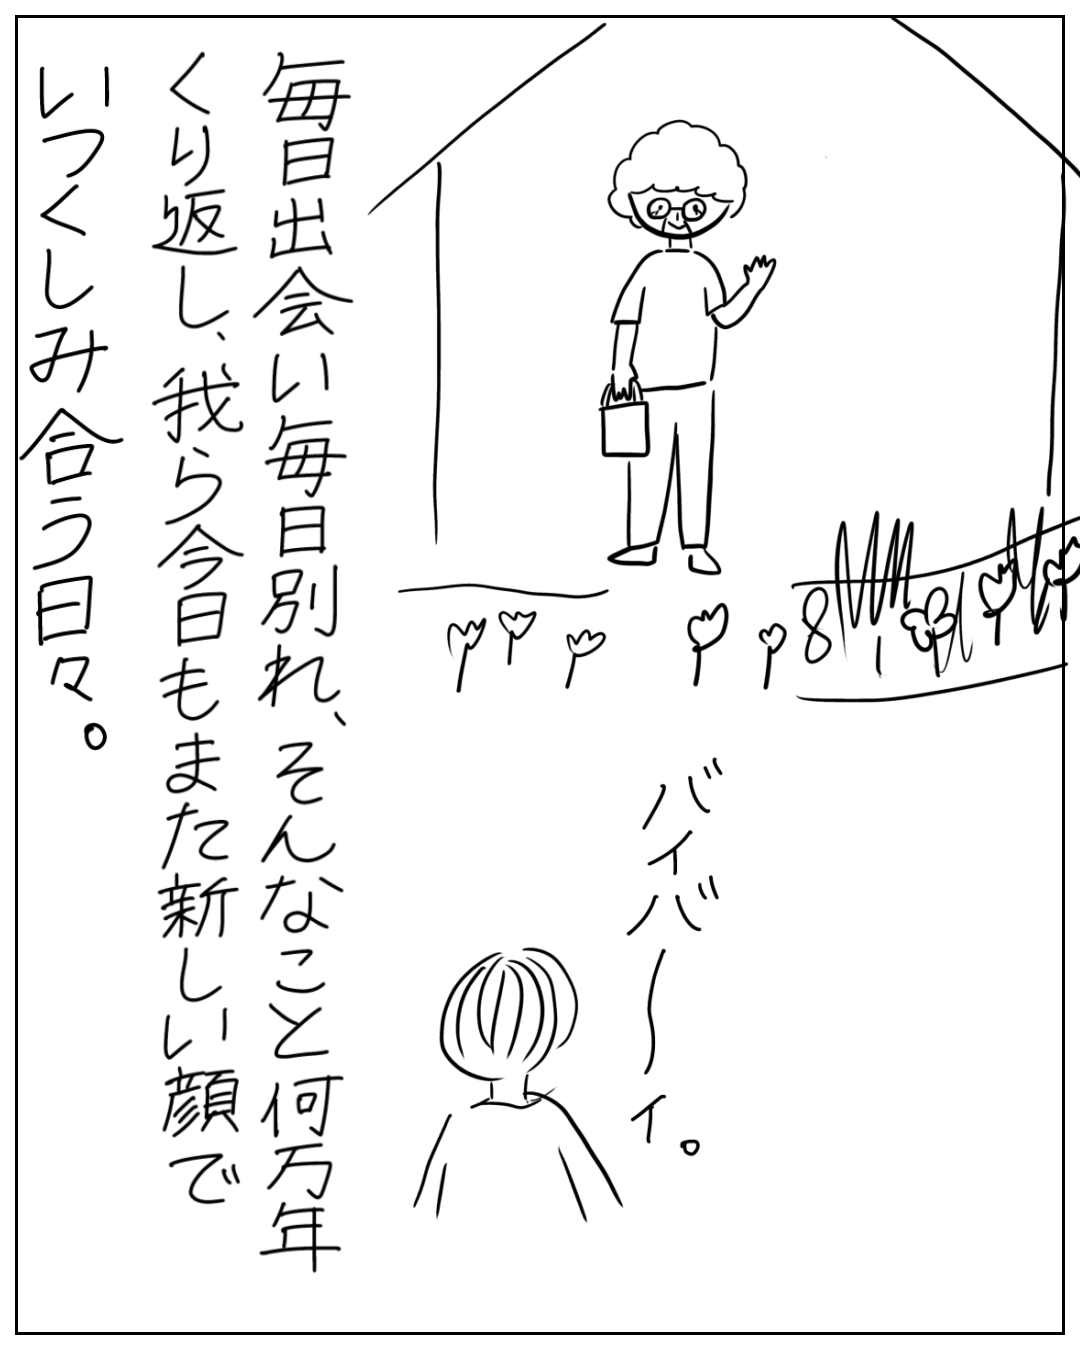 毎日出会い毎日別れ、そんなこと何万年
くり返し、我ら今日もまた新しい顔で
いつくしみ合う日々。
バイバーイ。